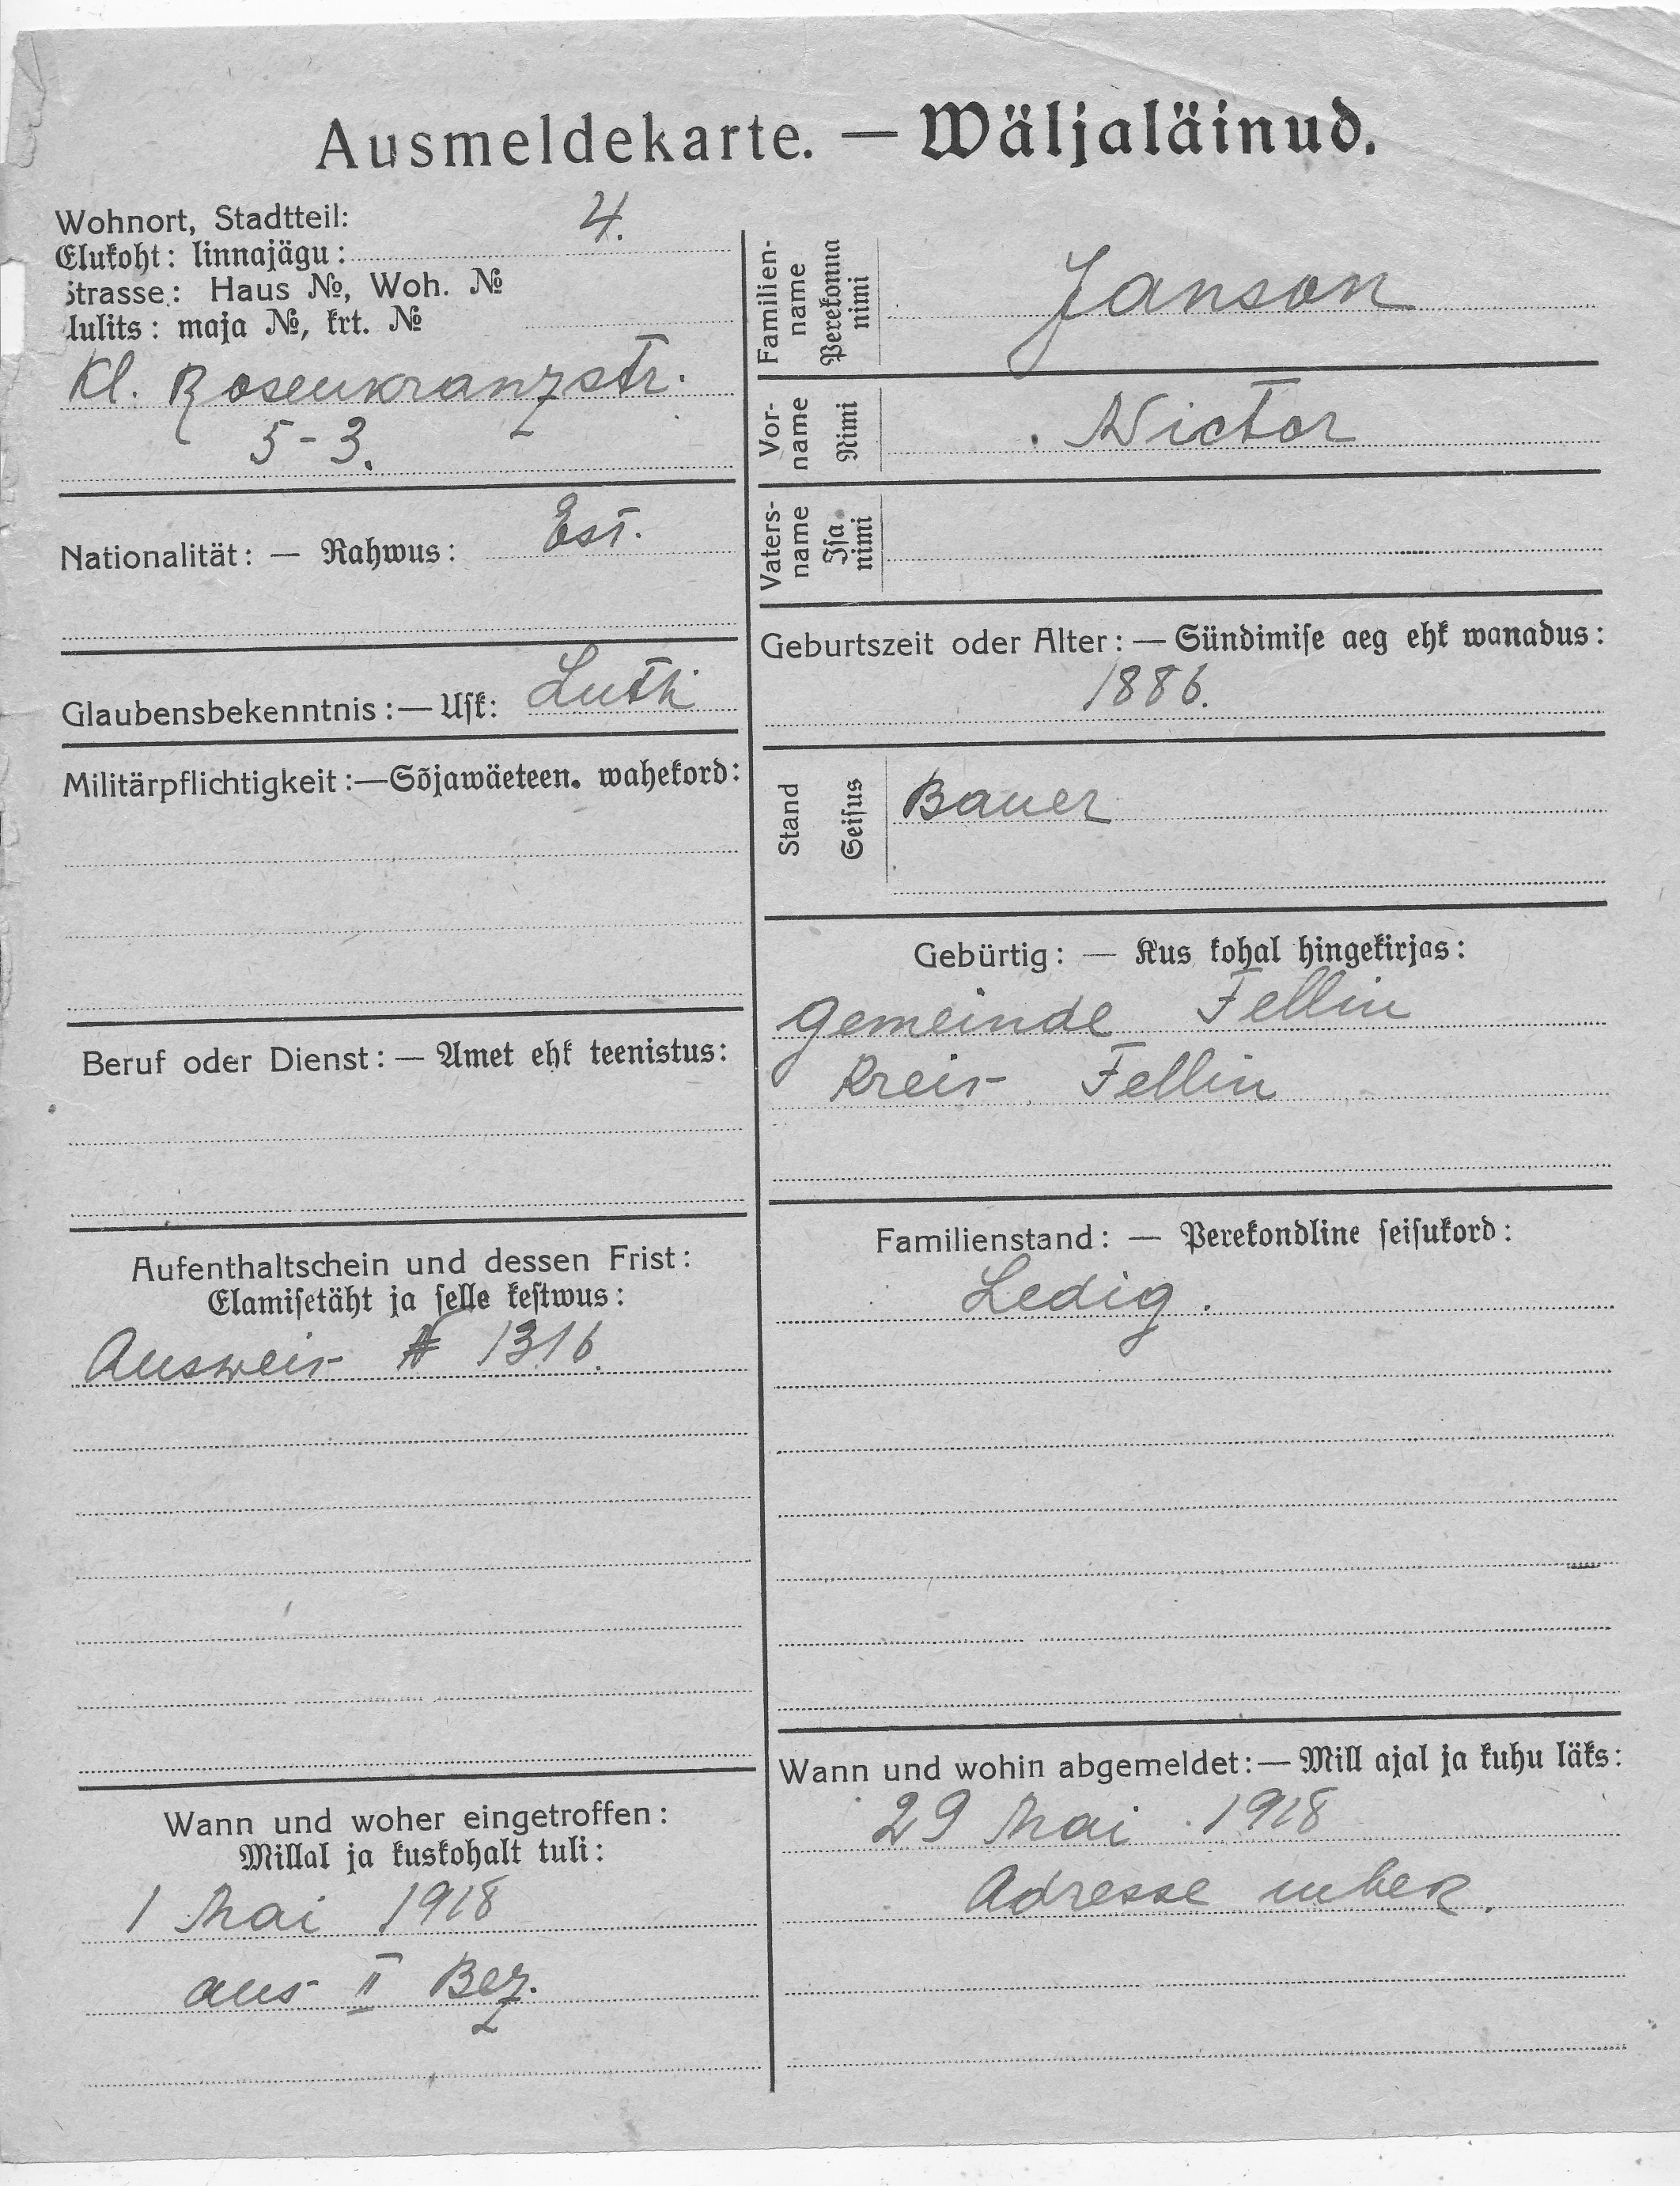 Ausmeldekarte. — Wäljaläinud.
Wohnort, Stadtteil: 4.
Elukoht: linnajägu:
Strasse: Haus №, Woh. №
Uulits: maja №, krt. №
Kl. Rosenkranzstr.
5-3.
Nationalität: — Rahwus: Est.
Glaubensbekenntnis: — Usk: Luth
Militärpflichtigkeit: — Sõjawäeteen. wahekord:
Beruf oder Dienst: — Amet ehk teenistus:
Aufenthaltschein und dessen Frist:
Elamisetäht ja selle kestwus:
Ausweis № 1316.
Wann und woher eingetroffen:
Millal ja kuskohalt tuli:
1 Mai 1918
aus II Bez.
Familien-
name
Perekonna
nimi
Janson
Vor-
name
Nimi
Victor
Vaters-
name
Isa
nimi
Geburtszeit oder Alter: — Sündimise aeg ehk wanadus:
1886.
Stand
Seisus
Bauer
Gebürtig: — Kus kohal hingekirjas:
Gemeinde Fellin
Kreis Fellin
Familienstand: — Perekondline seisukord:
Ledig.
Wann und wohin abgemeldet: — Mill ajal ja kuhu läks:
29 Mai 1918
Adresse unbek.